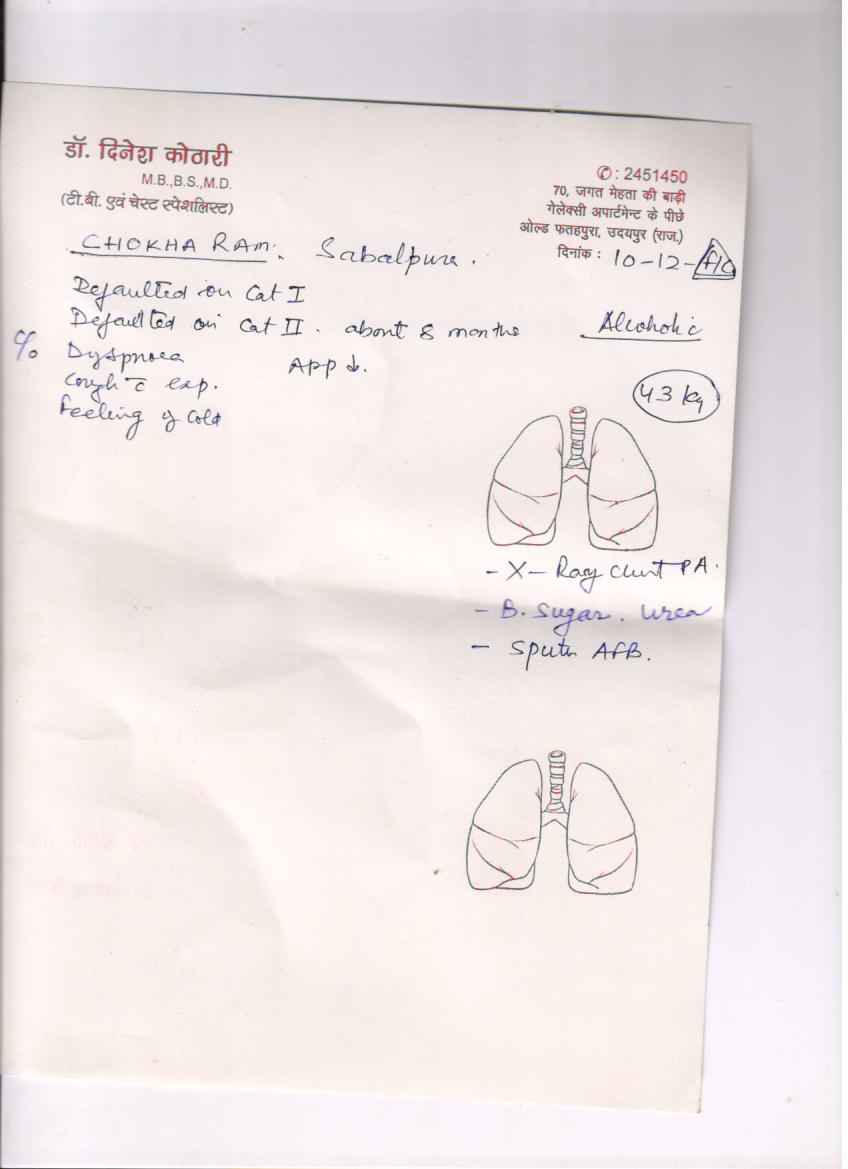 डॉ. दिनेश कोठारी
M.B.,B.S.,M.D.
(टी.बी. एवं चेस्ट स्पेशलिस्ट)
✆ : 2451450
70, जगत मेहता की बाड़ी
गेलेक्सी अपार्टमेन्ट के पीछे
ओल्ड फतहपुरा, उदयपुर (राज.)
दिनांक : 10-12-
CHOKHA RAM. Sabalpura.
Defaulted on Cat I
Defaulted on Cat II. about 8 months Alcoholic
c/o Dyspnoea App ↓.
Cough c̄ exp.
Feeling of cold
43 kg
- X-Ray Chest PA.
- B. Sugar. Urea
- Sputm AFB.